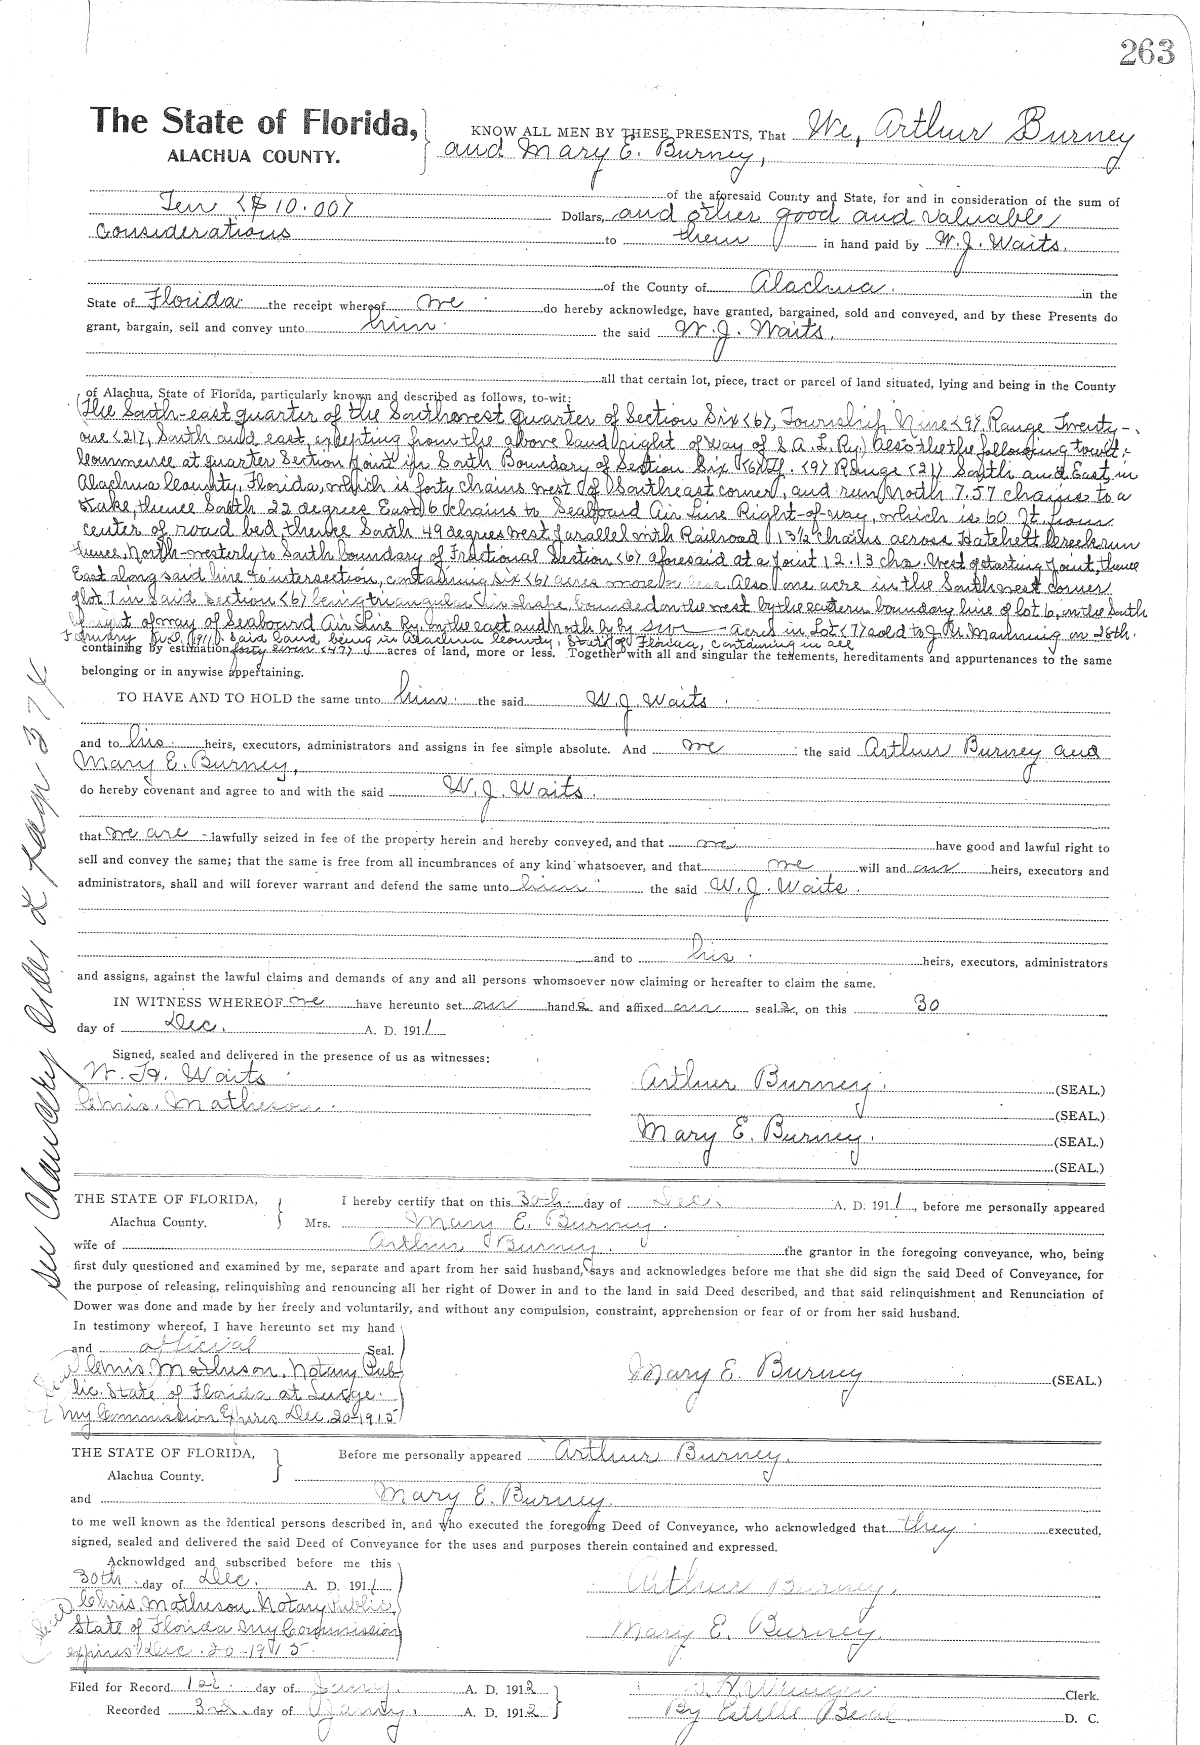 263
The State of Florida, KNOW ALL MEN BY THESE PRESENTS, That We, Arthur Burney
ALACHUA COUNTY. and Mary E. Burney,
of the aforesaid County and State, for and in consideration of the sum of
Ten <$10.00> Dollars, and other good and valuable
Considerations to them in hand paid by W.J. Waits.
of the County of Alachua. in the
State of Florida the receipt whereof we do hereby acknowledge, have granted, bargained, sold and conveyed, and by these Presents do
grant, bargain, sell and convey unto him. the said W.J. Waits.
all that certain lot, piece, tract or parcel of land situated, lying and being in the County
of Alachua, State of Florida, particularly known and described as follows, to-wit:
(The South-east quarter of the Southwest quarter of Section Six <6>, Township Nine <9>, Range Twenty-
one <21>, South and east, excepting from the above land right of way of S.A.L. Ry.) also the following towit:-
Commence at quarter Section point in South Boundary of Section Six <6> Tp. <9> Range <21> South and East, in
Alachua County, Florida, which is forty chains west of Southeast corner, and run North 7.57 chains to a
stake, thence South 22 degrees East 6 chains to Seaboard Air Line Right-of-way, which is 60 ft. from
center of road bed, thence South 49 degrees west parallel with Railroad 13½ chains across Hatchett Creek run
thence North-westerly to South boundary of Fractional Section <6> aforesaid at a point 12.13 chs. West of starting point, thence
East along said line to intersection, containing six <6> acres more or less. Also one acre in the Southwest corner
of lot 7 in said section <6> being triangular in shape, bounded on the west by the eastern boundary line of lot 6, on the South
by right of way of Seaboard Air Line Ry. on the east and North by acres in Lot <7> sold to J. R. Manning on 28th.
February 1911. Said land being in Alachua County, State of Florida, containing in all
containing by estimation forty seven <47> acres of land, more or less. Together with all and singular the tenements, hereditaments and appurtenances to the same
belonging or in anywise appertaining.
TO HAVE AND TO HOLD the same unto him. the said W.J. Waits.
and to his heirs, executors, administrators and assigns in fee simple absolute. And we the said Arthur Burney and
Mary E. Burney,
do hereby covenant and agree to and with the said W.J. Waits.
that we are lawfully seized in fee of the property herein and hereby conveyed, and that we have good and lawful right to
sell and convey the same; that the same is free from all incumbrances of any kind whatsoever, and that we will and our heirs, executors and
administrators, shall and will forever warrant and defend the same unto him the said W.J. Waits.
and to his. heirs, executors, administrators
and assigns, against the lawful claims and demands of any and all persons whomsoever now claiming or hereafter to claim the same.
IN WITNESS WHEREOF we have hereunto set our hands and affixed our seals, on this 30
day of Dec. A. D. 1911
Signed, sealed and delivered in the presence of us as witnesses:
W. H. Waits
Chris. Matheson.
Arthur Burney. (SEAL.)
(SEAL.)
Mary E. Burney. (SEAL.)
(SEAL.)
see Chancery Order L page 374
THE STATE OF FLORIDA, I hereby certify that on this 30th. day of Dec. A. D. 1911, before me personally appeared
Alachua County. Mrs. Mary E. Burney.
wife of Arthur Burney. the grantor in the foregoing conveyance, who, being
first duly questioned and examined by me, separate and apart from her said husband, says and acknowledges before me that she did sign the said Deed of Conveyance, for
the purpose of releasing, relinquishing and renouncing all her right of Dower in and to the land in said Deed described, and that said relinquishment and Renunciation of
Dower was done and made by her freely and voluntarily, and without any compulsion, constraint, apprehension or fear of or from her said husband.
In testimony whereof, I have hereunto set my hand
and official Seal.
Seal Chris. Matheson. Notary Pub- Mary E. Burney (SEAL.)
lic. State of Florida at Large.
My Commission Expires Dec. 20-1915
THE STATE OF FLORIDA, Before me personally appeared Arthur Burney.
Alachua County.
and Mary E. Burney.
to me well known as the identical persons described in, and who executed the foregoing Deed of Conveyance, who acknowledged that they executed,
signed, sealed and delivered the said Deed of Conveyance for the uses and purposes therein contained and expressed.
Acknowldged and subscribed before me this
30th. day of Dec. A. D. 1911 Arthur Burney.
Seal Chris. Matheson. Notary Public,
State of Florida My Commission Mary E. Burney.
expires Dec. 20-1915.
Filed for Record 1st. day of Jany. A. D. 1912 Clerk.
Recorded 3rd. day of Jany. A. D. 1912 By Estelle Beal D. C.